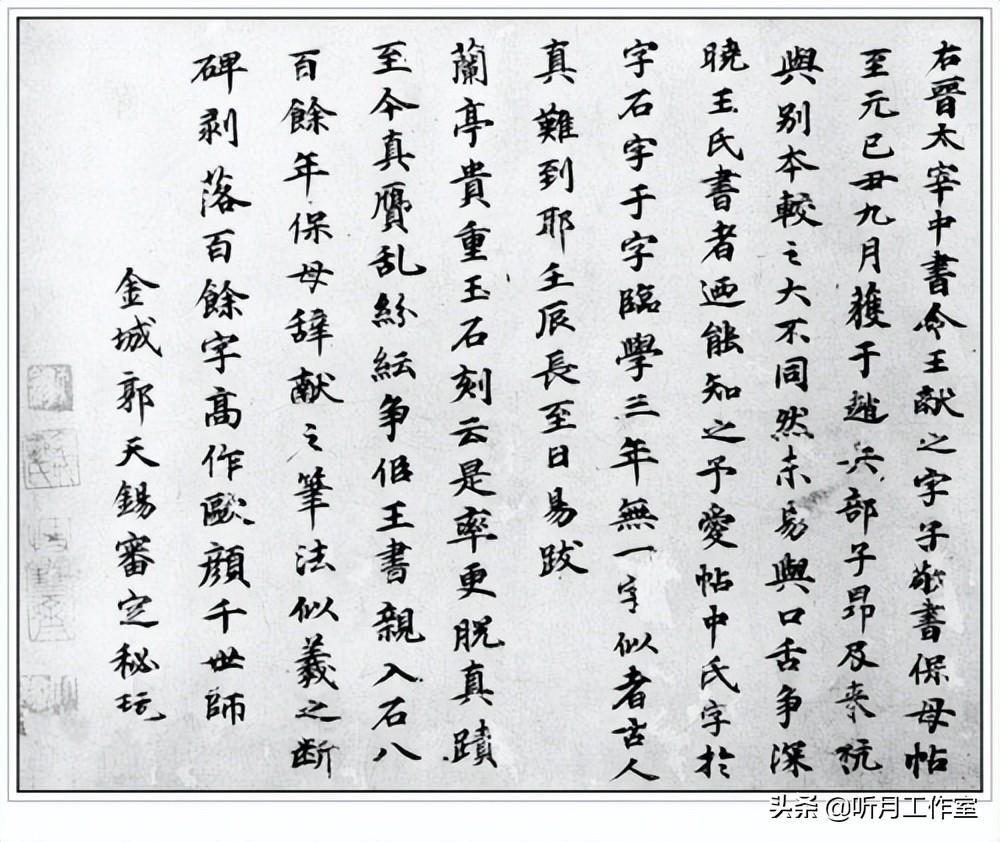 右晉太宰中書令王献之字子敬書保母帖
至元己丑九月獲于趙兵部子昂及来杭
與别本較之大不同然未易與口舌争深
曉王氏書者迺能知之予愛帖中氏字於
字石字于字臨學三年無一字似者古人
真難到耶壬辰長至日易跋
蘭亭貴重玉石刻云是率更脱真蹟
至今真贋乱絲紜争侣王書親入石八
百餘年保母辭献之筆法似羲之断
碑剥落百餘字高作歐顔千世師
金城郭天錫審定秘玩
头条 @听月工作室